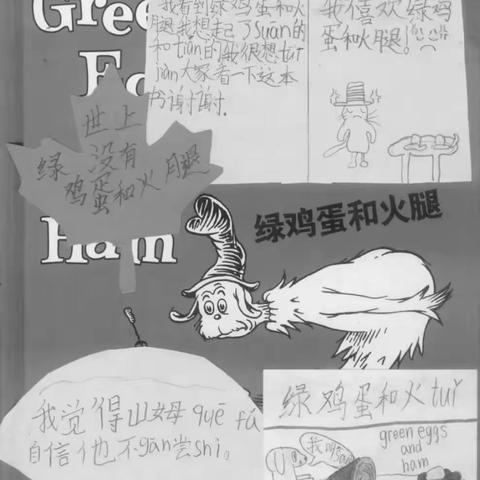 我看到绿鸡蛋和火
腿我想起了suān的
和tián的我很想tuī
jiàn大家看一下这本
书谢谢.
我喜欢绿鸡
蛋和火腿!
Gree
世上
没有
绿鸡蛋和火腿
Ham
绿鸡蛋和火腿
我觉得山姆quē fá
自信他不gǎn尝shì。
绿鸡蛋和火tuǐ
green eggs
and
ham